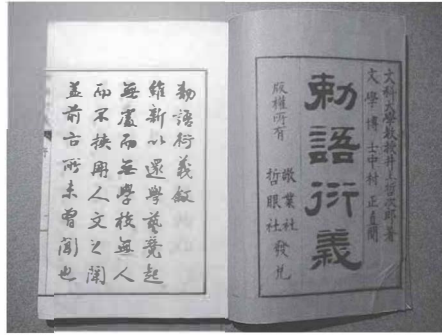 文科大學教授井上哲次郎著
文學博士中村正直閲
勅語衍義
版權所有
敬業社
哲眼社
發兌
勅語衍義敘
維新以還學藝競起
無處而無學校無人
而不挾冊人文之闡
蓋前古所未曾聞也